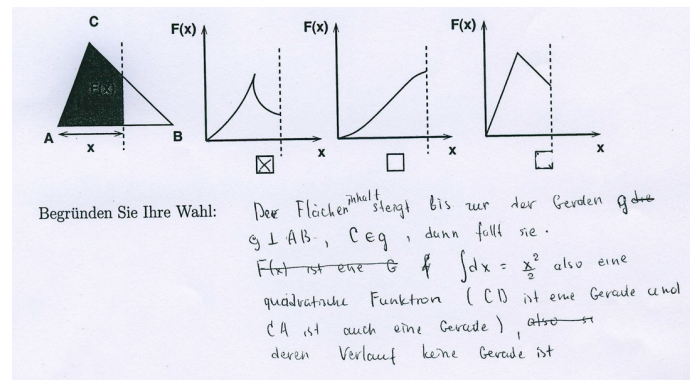 C
F(x)
F(x)
F(x)
F(x)
A
B
x
x
x
x
Begründen Sie Ihre Wahl:
Der Flächeninhalt steigt bis zur der Gerden g die
g ⊥ AB, C ∈ g, dann fällt sie.
F(x) ist ene G ∫dx = x²/2 also eine
quadratische Funktion (CD ist eine Gerade und
CA ist auch eine Gerade), also
deren Verlauf keine Gerade ist